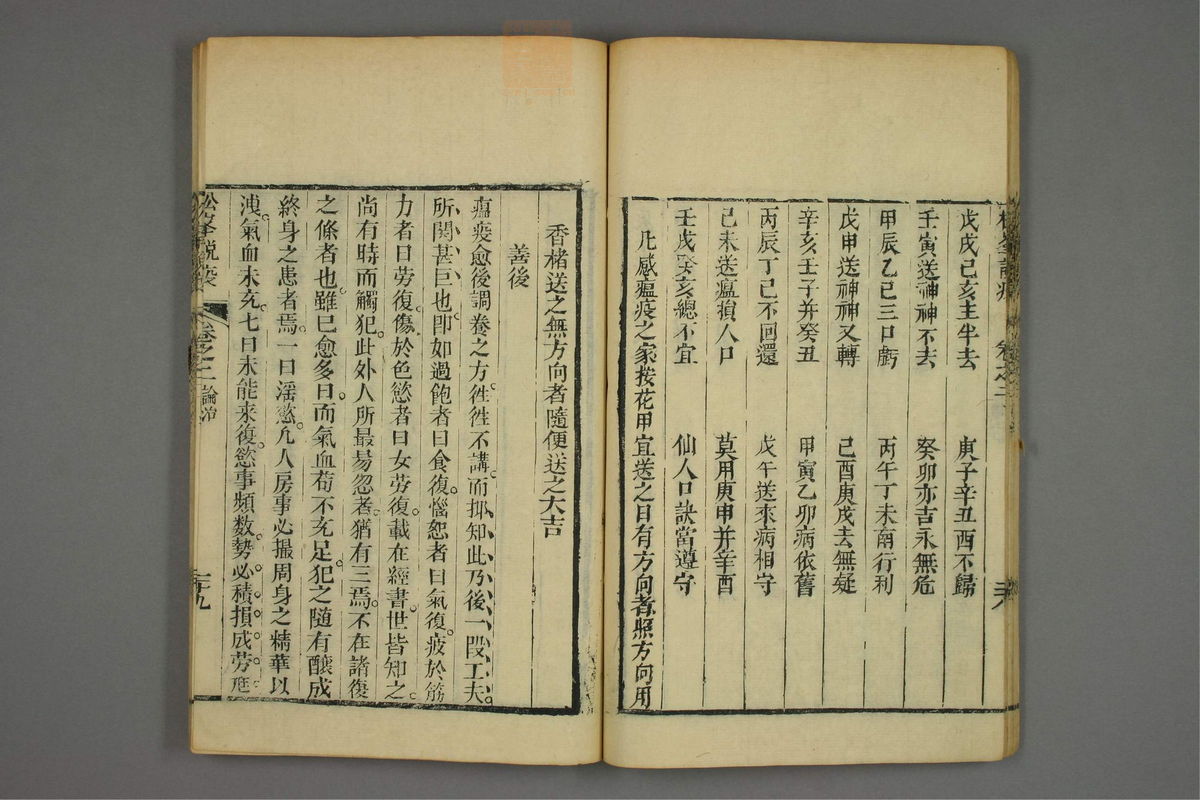 戊戌己亥主半去　庚子辛丑西不歸
壬寅送神神不去　癸卯亦吉永無危
甲辰乙巳三口虧　丙午丁未南行利
戊申送神神又轉　己酉庚戌去無疑
辛亥壬子并癸丑　甲寅乙卯病依舊
丙辰丁巳不回還　戊午送來病相守
己未送瘟損人口　莫用庚申并辛酉
壬戌癸亥總不宜　仙人口訣當遵守
凡感瘟疫之家按花甲宜送之日有方向者照方向用
香楮送之無方向者隨便送之大吉
善後
瘟疫愈後調養之方往往不講而抑知此乃後一段工夫
所關甚巨也即如過飽者曰食復惱怒者曰氣復疲於筋
力者曰勞復傷於色慾者曰女勞復載在經書世皆知之
尚有時而觸犯此外人所最易忽者猶有三焉不在諸復
之條者也雖已愈多日而氣血苟不充足犯之隨有釀成
終身之患者焉一曰淫慾凡人房事必撮周身之精華以
洩氣血未充七日未能來復慾事頻數勢必積損成勞尫
松峯說疫　卷之二　論治　三十九